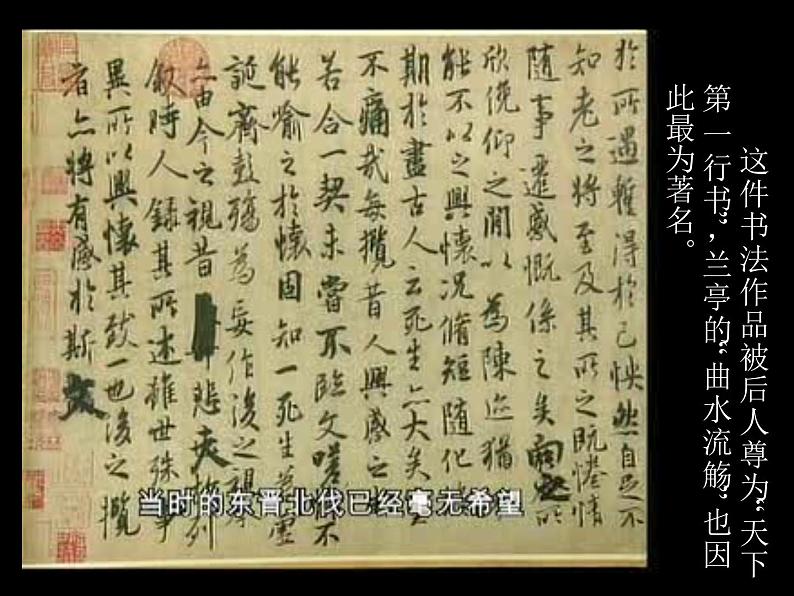 这件书法作品被后人尊为“天下
第一行书”，兰亭的“曲水流觞”也因
此最为著名。
於所遇蹔得於己怏然自足不
知老之將至及其所之既惓情
隨事遷感慨係之矣向之所
欣俛仰之閒以為陳迹猶不
能不以之興懷況脩短隨化終
期於盡古人云死生亦大矣豈
不痛哉每攬昔人興感之由
若合一契未嘗不臨文嗟悼不
能喻之於懷固知一死生為虛
誕齊彭殤為妄作後之視今
亦由今之視昔悲夫故列
敘時人錄其所述雖世殊事
異所以興懷其致一也後之攬
者亦將有感於斯文
当时的东晋北伐已经毫无希望